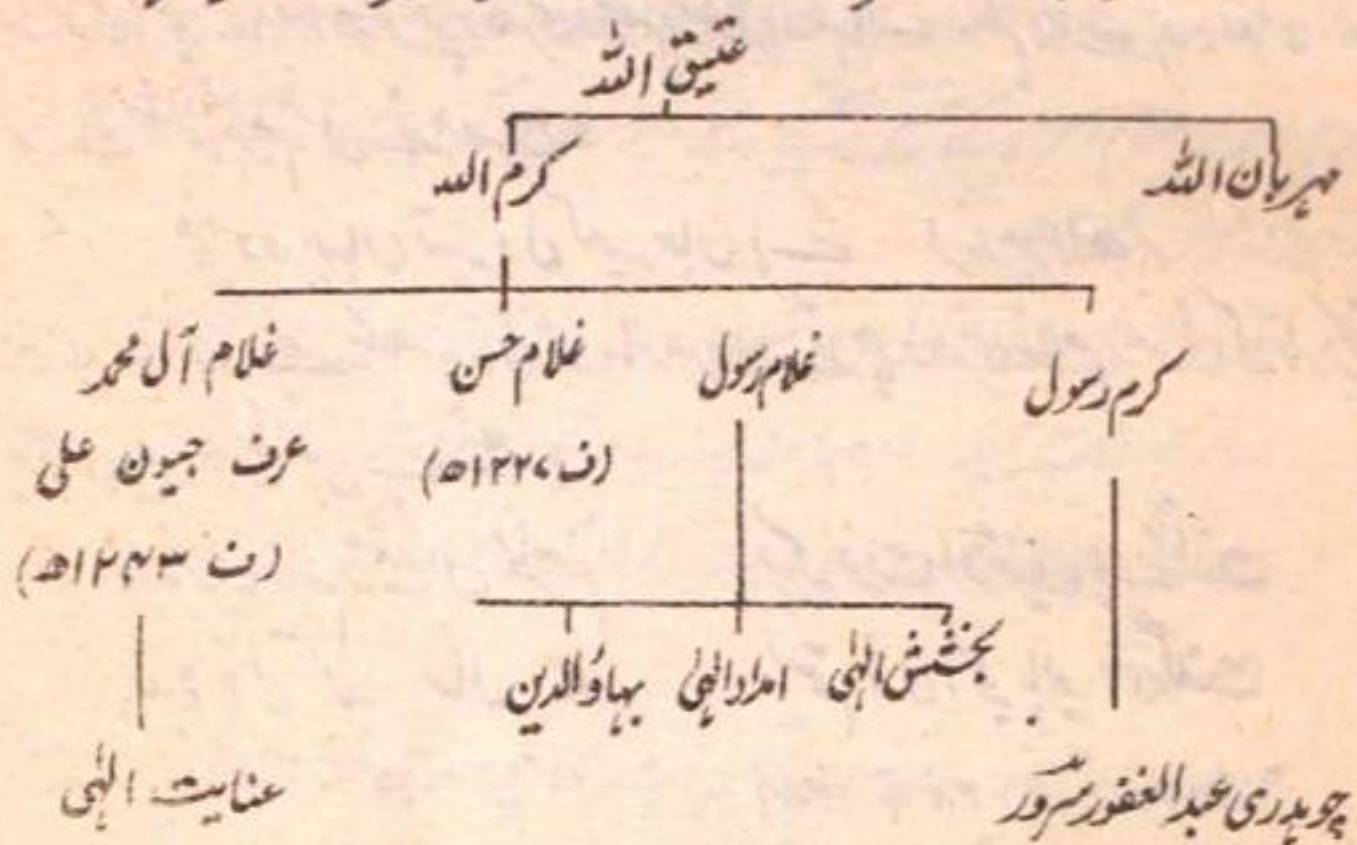 عتیق اللہ
مہربان اللہ کرم اللہ
کرم رسول غلام رسول غلام حسن غلام آل محمد
(ف ۱۲۲۷ھ) عرف جیون علی
(ف ۱۲۴۳ھ)
بخشش الٰہی امداد الٰہی بہاؤالدین
چوہدری عبدالغفور سرور عنایت الٰہی